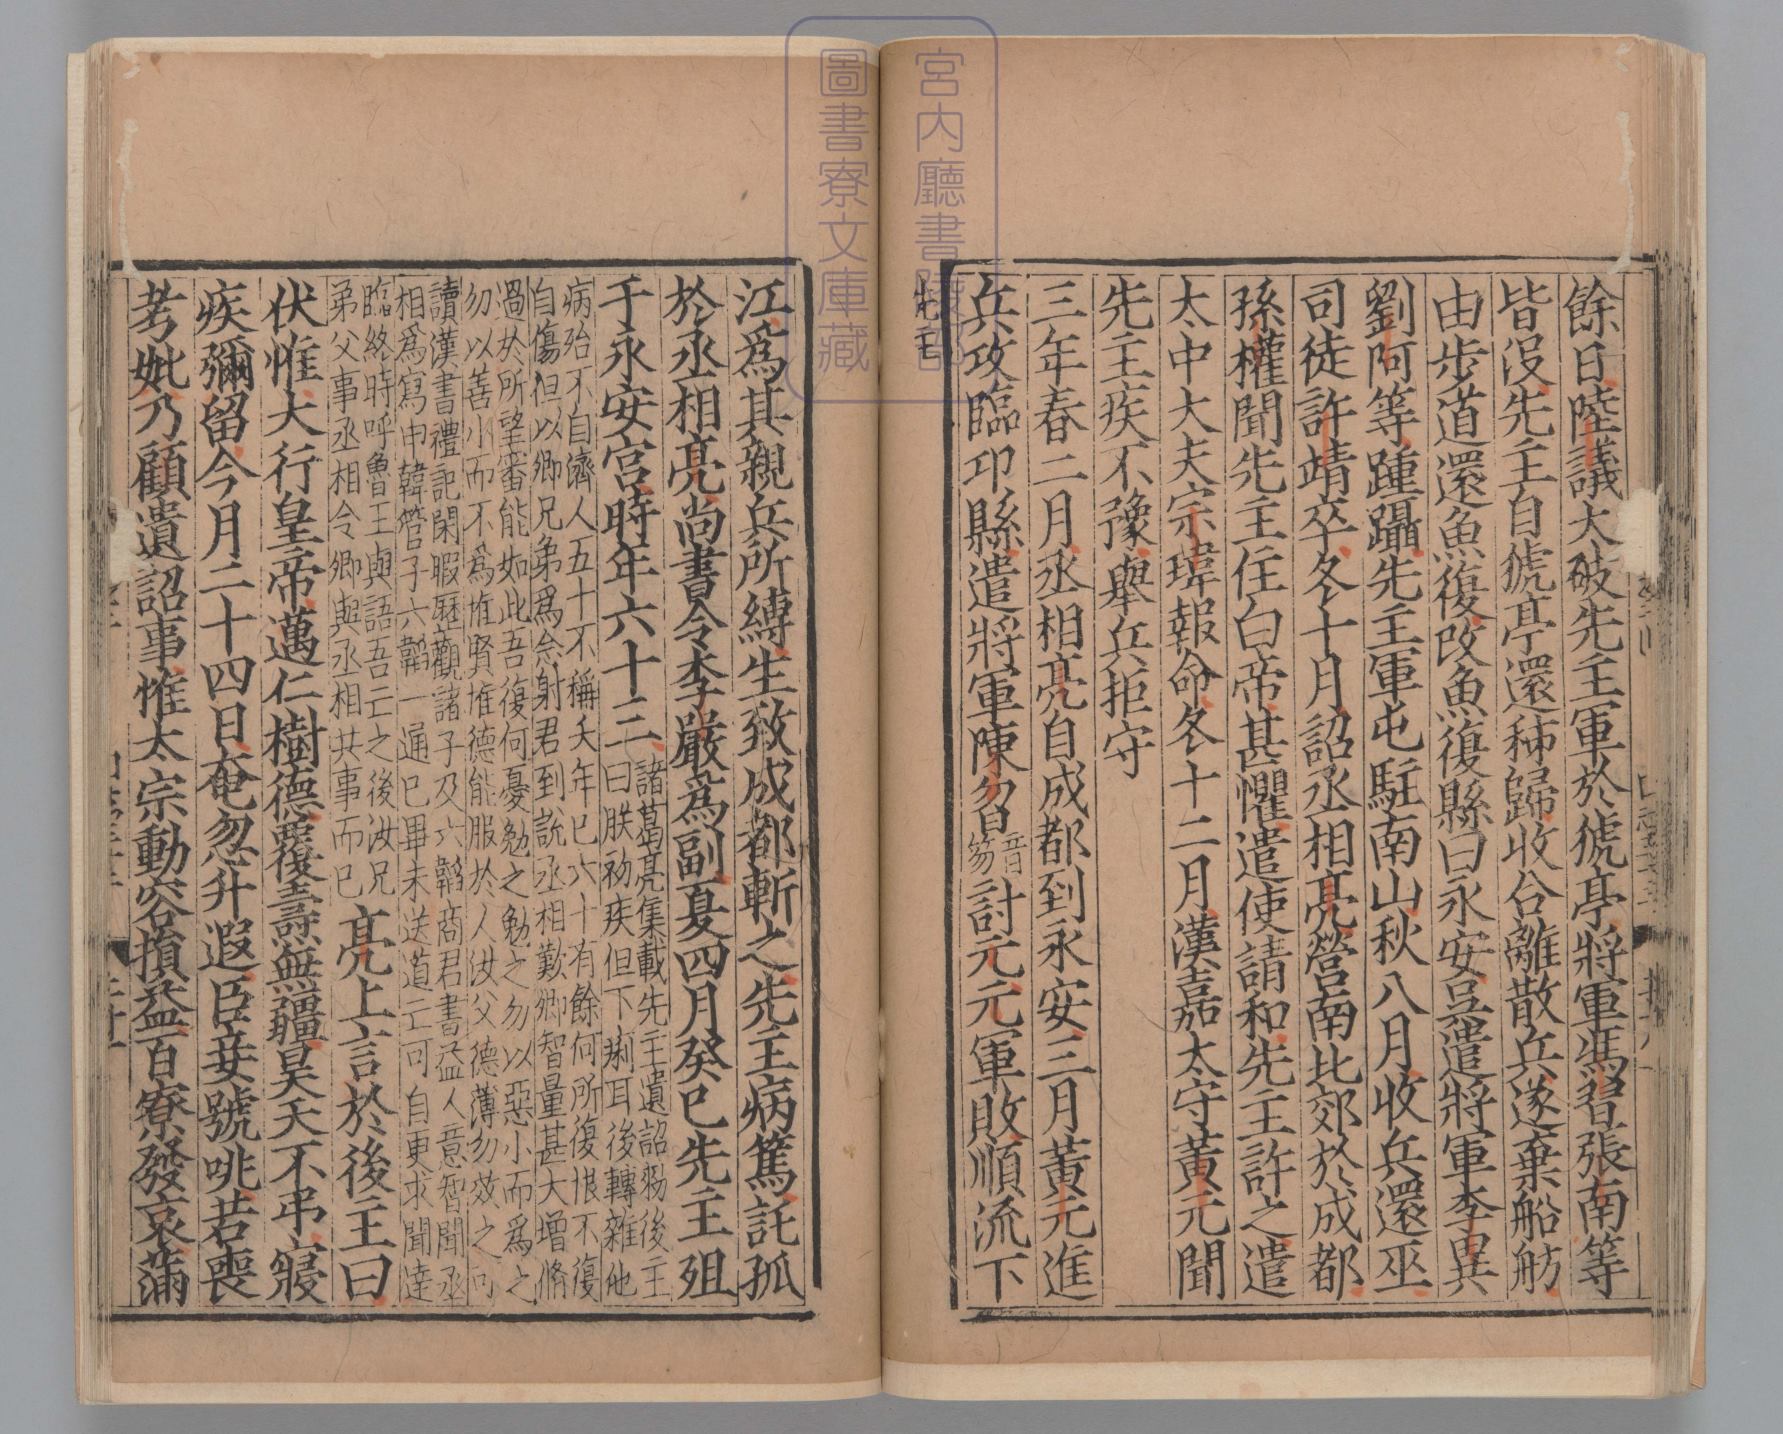 餘日陸議大破先主軍於猇亭將軍馮習張南等
皆沒先主自猇亭還秭歸收合離散兵遂棄船舫
由步道還魚復改魚復縣曰永安吳遣將軍李異
劉阿等踵躡先主軍屯駐南山秋八月收兵還巫
司徒許靖卒冬十月詔丞相亮營南北郊於成都
孫權聞先主住白帝甚懼遣使請和先主許之遣
太中大夫宗瑋報命冬十二月漢嘉太守黃元聞
先主疾不豫舉兵拒守
三年春二月丞相亮自成都到永安三月黃元進
兵攻臨邛縣遣將軍陳曶音笏討元元軍敗順流下
先主
江爲其親兵所縛生致成都斬之先主病篤託孤
於丞相亮尚書令李嚴爲副夏四月癸巳先主殂
于永安宮時年六十三
諸葛亮集載先主遺詔勑後主
曰朕初疾但下痢耳後轉雜他
病殆不自濟人五十不稱夭年已六十有餘何所復恨不復
自傷但以卿兄弟爲念射君到說丞相歎卿智量甚大增脩
過於所望審能如此吾復何憂勉之勉之勿以惡小而爲之
勿以善小而不爲惟賢惟德能服於人汝父德薄勿效之可
讀漢書禮記閑暇歷觀諸子及六韜商君書益人意智聞丞
相爲寫申韓管子六韜一通已畢未送道亡可自更求聞達
臨終時呼魯王與語吾亡之後汝兄
弟父事丞相令卿與丞相共事而已
亮上言於後主曰
伏惟大行皇帝邁仁樹德覆燾無疆昊天不弔寢
疾彌留今月二十四日奄忽升遐臣妾號咷若喪
考妣乃顧遺詔事惟太宗動容損益百寮發哀滿
宮內廳書陵部
圖書寮文庫藏